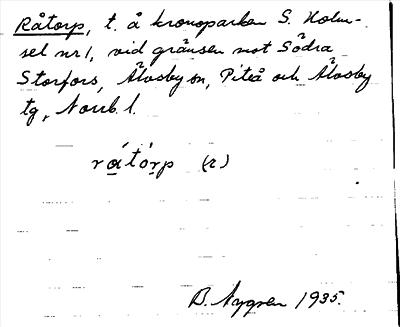 Råtorp, t. å kronoparken S. Holm-
sel nr 1, vid gränsen mot Södra
Storfors, Älvsby sn, Piteå och Älvsby
tg, Norrb. l.
rátórp (2)
B. Nygren 1935.